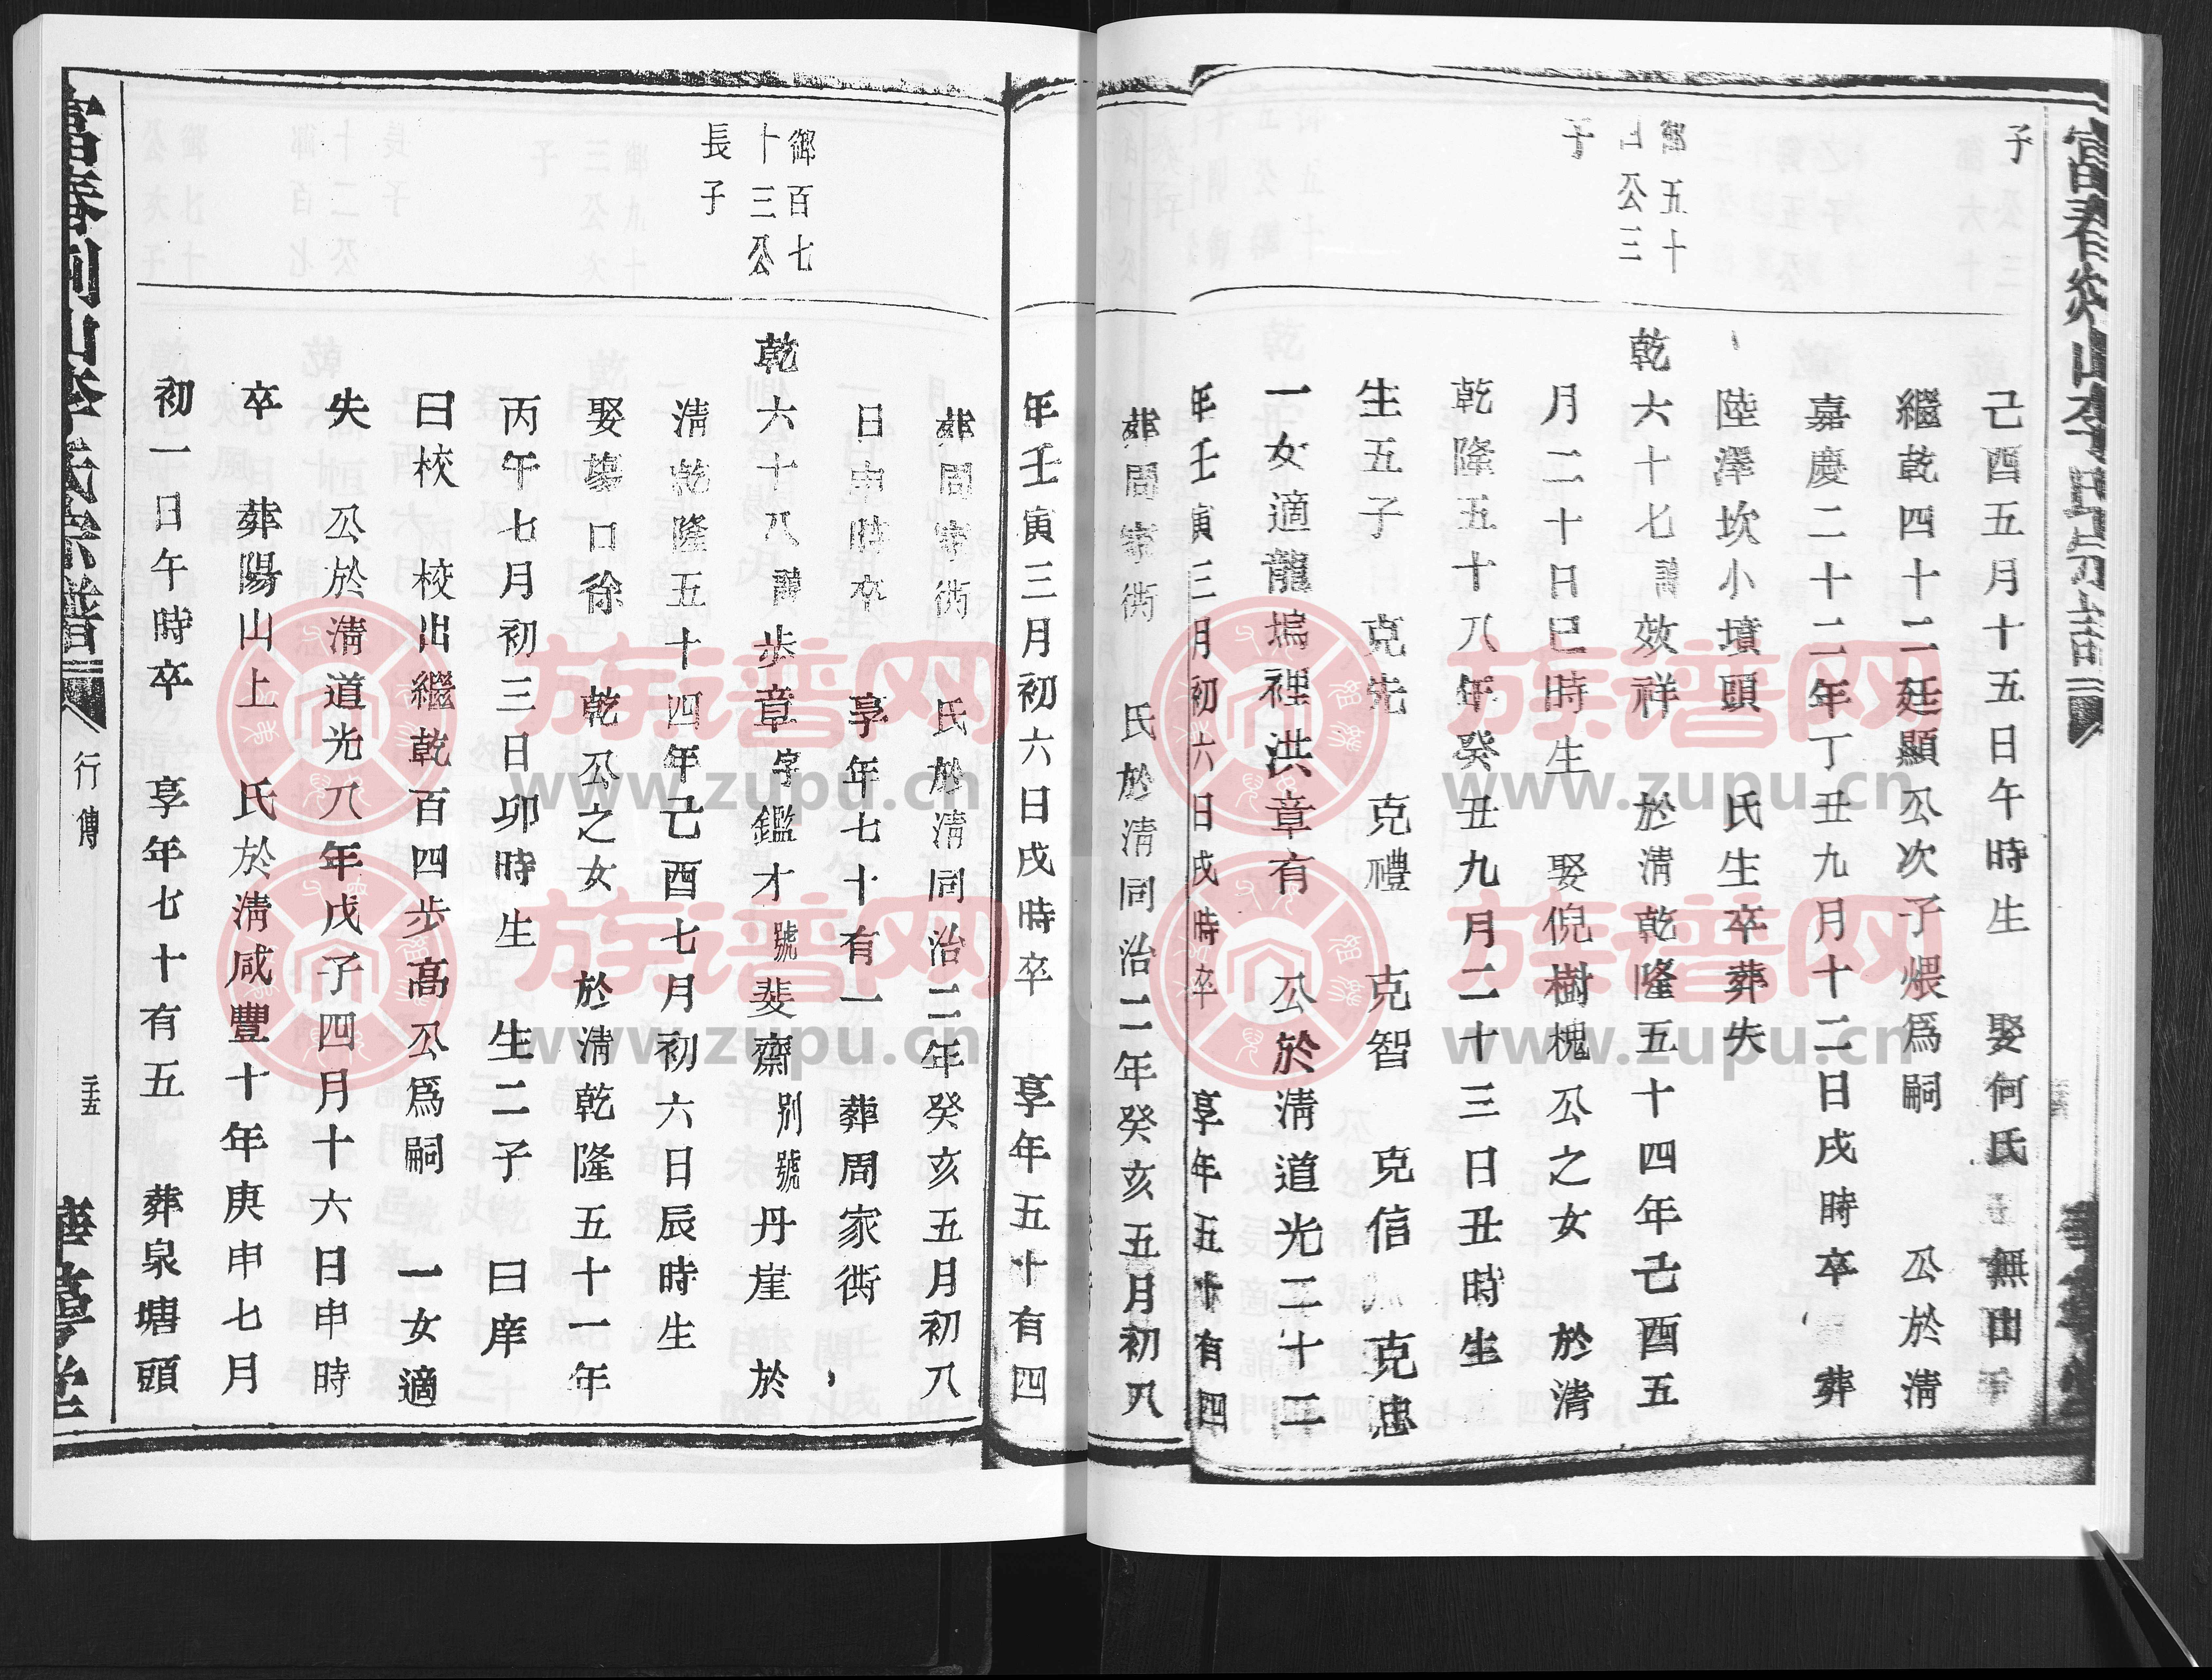 子
己酉五月十五日午時生　娶何氏　無出
繼乾四十二廷顯公次子煨爲嗣　公於清
嘉慶二十二年丁丑九月十二日戌時卒　葬
陸澤坎小墳頭　氏生卒葬失
御五十
公三
子
乾六十七諱效祥　於清乾隆五十四年己酉五
月二十日巳時生　娶倪樹槐公之女　於清
乾隆五十八年癸丑九月二十三日丑時生
生五子　克先　克禮　克智　克信　克忠
一女適龍塢裡洪章有　公於清道光二十二
年壬寅三月初六日戌時卒　享年五十有四
葬周家衖　氏於清同治二年癸亥五月初八
年壬寅三月初六日戌時卒　享年五十有四
葬周家衖　氏於清同治二年癸亥五月初八
日申時卒　享年七十有一　葬周家衖
御百七
十三公
長子
乾六十八諱步章字鑑才號斐齋別號丹崖　於
清乾隆五十四年己酉七月初六日辰時生
娶塲口徐　乾公之女　於清乾隆五十一年
丙午七月初三日卯時生　生二子　曰庠
曰校　校出繼乾百四步高公爲嗣　一女適
失　公於清道光八年戊子四月十六日申時
卒　葬陽山上　氏於清咸豐十年庚申七月
初一日午時卒　享年七十有五　葬泉塘頭
行傳
三十五
族谱网
www.zupu.cn
族谱网
www.zupu.cn
族谱网
www.zupu.cn
族谱网
www.zupu.cn